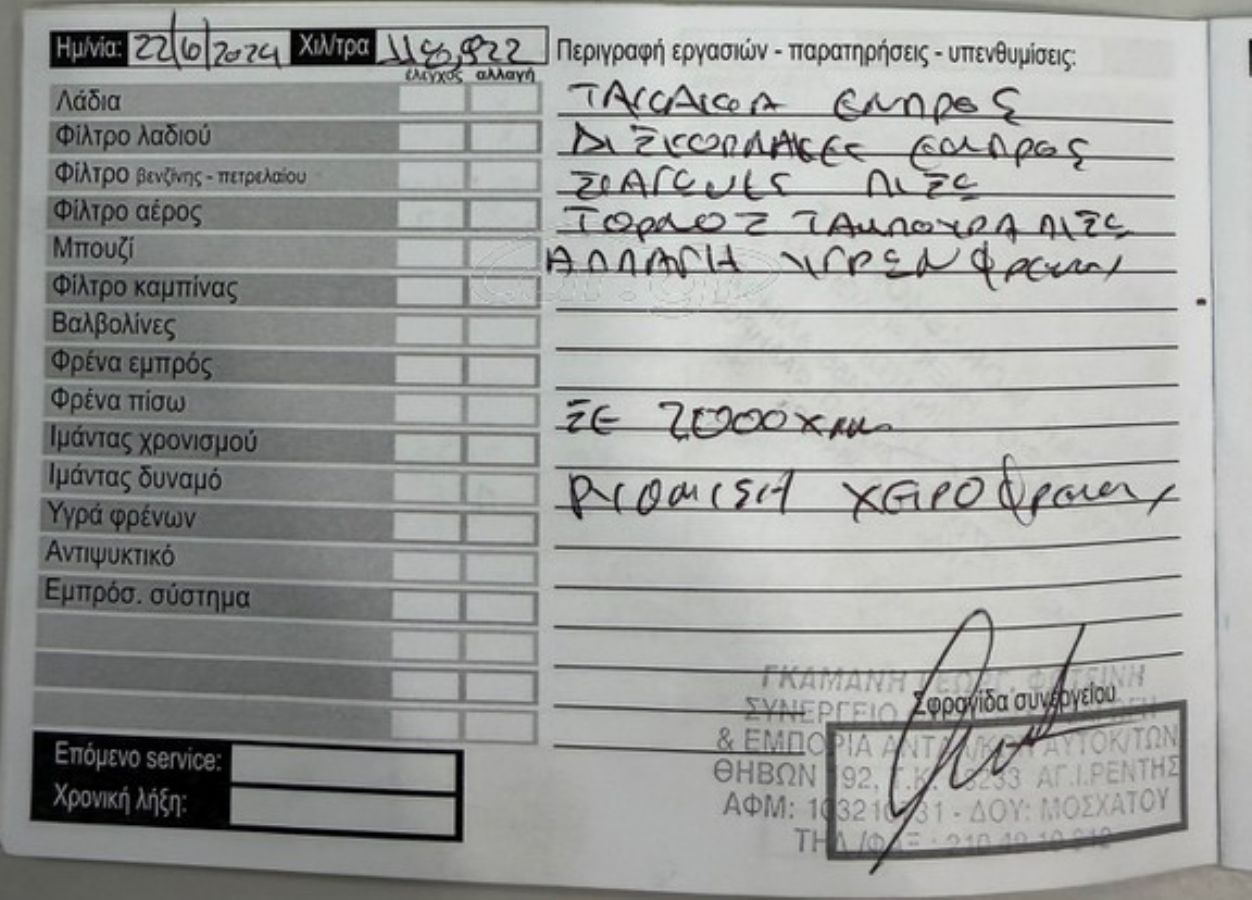 Ημ/νία: 22/6/2024 Χιλ/τρα 118,922
έλεγχος αλλαγή
Λάδια
Φίλτρο λαδιού
Φίλτρο βενζίνης - πετρελαίου
Φίλτρο αέρος
Μπουζί
Φίλτρο καμπίνας
Βαλβολίνες
Φρένα εμπρός
Φρένα πίσω
Ιμάντας χρονισμού
Ιμάντας δυναμό
Υγρά φρένων
Αντιψυκτικό
Εμπρόσ. σύστημα
Επόμενο service:
Χρονική λήξη:
Περιγραφή εργασιών - παρατηρήσεις - υπενθυμίσεις:
ΤΑΚΑΚΙΑ ΕΜΠΡΟΣ
ΔΙΣΚΟΠΛΑΚΕΣ ΕΜΠΡΟΣ
ΣΙΑΓΩΝΕΣ ΠΙΣΩ
ΤΟΡΝΟΣ ΤΑΜΠΟΥΡΑ ΠΙΣΩ
ΑΛΛΑΓΗ ΥΓΡΩΝ ΦΡΕΝΩΝ
ΣΕ 2000 ΧΛΜ
ΡΥΘΜΙΣΗ ΧΕΙΡΟΦΡΕΝΩΝ
Σφραγίδα συνεργείου
ΓΚΑΜΑΝΗ ΓΕΩΡΓ. ΦΩΤΕΙΝΗ
ΣΥΝΕΡΓΕΙΟ
& ΕΜΠΟΡΙΑ ΑΝΤΑΛ/ΚΩΝ ΑΥΤΟΚ/ΤΩΝ
ΘΗΒΩΝ 192, Τ.Κ. ΑΓ.Ι.ΡΕΝΤΗΣ
ΑΦΜ: - ΔΟΥ: ΜΟΣΧΑΤΟΥ
ΤΗΛ./ΦΑΞ :
car.gr